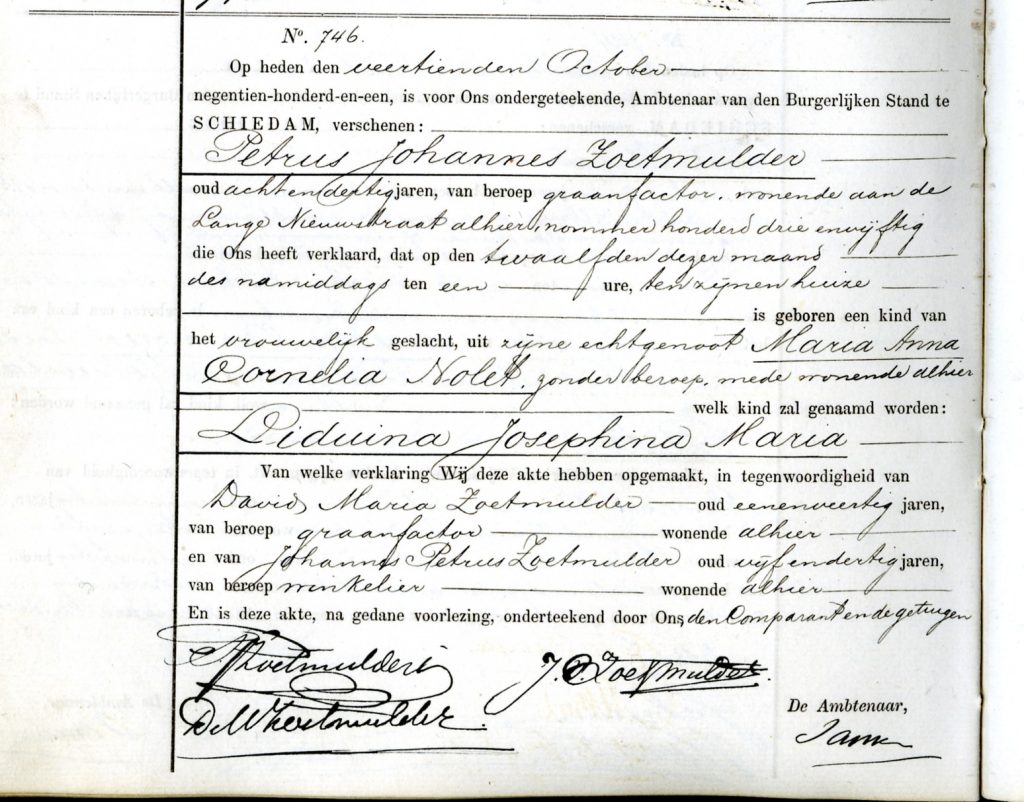 No. 746.
Op heden den veertienden October
negentien-honderd-en-een, is voor Ons ondergeteekende, Ambtenaar van den Burgerlijken Stand te
SCHIEDAM, verschenen:
Petrus Johannes Zoetmulder
oud achtendertig jaren, van beroep graanfactor, wonende aan de
Lange Nieuwstraat alhier, nommer honderd drie envijftig
die Ons heeft verklaard, dat op den twaalfden dezer maand
des namiddags ten een ure, ten zijnen huize
is geboren een kind van
het vrouwelijk geslacht, uit zijne echtgenoot Maria Anna
Cornelia Nolet zonder beroep, mede wonende alhier
welk kind zal genaamd worden:
Liduina Josephina Maria
Van welke verklaring Wij deze akte hebben opgemaakt, in tegenwoordigheid van
David Maria Zoetmulder oud eenenveertig jaren,
van beroep graanfactor wonende alhier
en van Johannes Petrus Zoetmulder oud vijfendertig jaren,
van beroep winkelier wonende alhier
En is deze akte, na gedane voorlezing, onderteekend door Ons, den Comparant en de getuigen
Zoetmulder J. P. Zoetmulder.
D. M. Zoetmulder
De Ambtenaar,